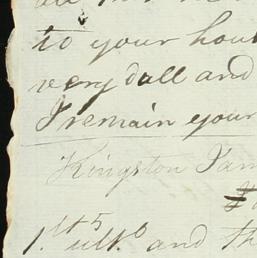 to your hou
very dull and
I remain your
Kingston Jam
1.st ulto. and th